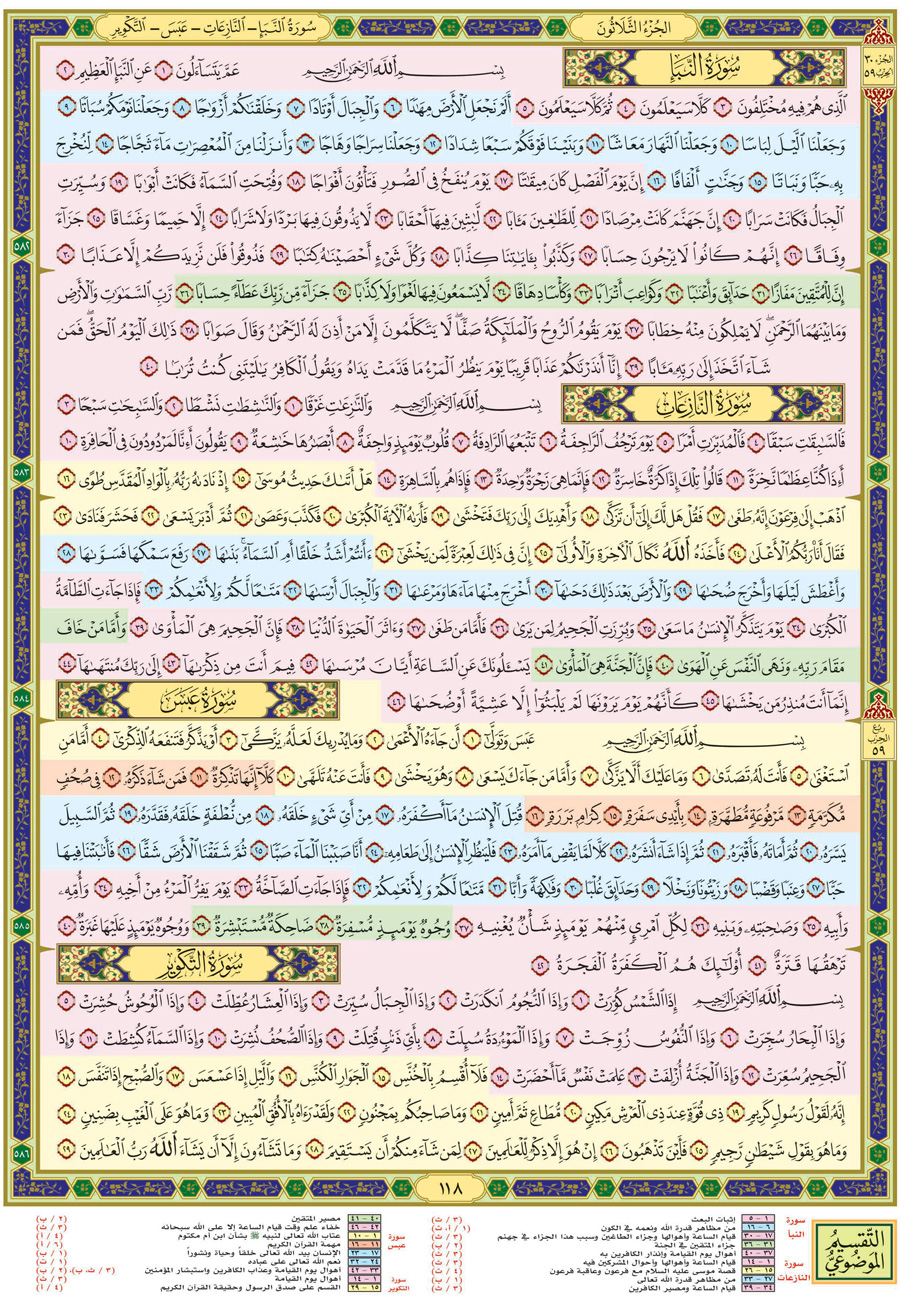 سُورَةُ النَّبَإِ - النَّازِعَاتِ - عَبَسَ - التَّكْوِيرِ
الجُزْءُ الثَّلَاثُونَ
الجزء ٣٠
الحزب ٥٩
سُورَةُ النَّبَإِ
بِسْمِ ٱللَّهِ ٱلرَّحْمَٰنِ ٱلرَّحِيمِ عَمَّ يَتَسَآءَلُونَ ١ عَنِ ٱلنَّبَإِ ٱلْعَظِيمِ ٢
ٱلَّذِى هُمْ فِيهِ مُخْتَلِفُونَ ٣ كَلَّا سَيَعْلَمُونَ ٤ ثُمَّ كَلَّا سَيَعْلَمُونَ ٥ أَلَمْ نَجْعَلِ ٱلْأَرْضَ مِهَٰدًا ٦ وَٱلْجِبَالَ أَوْتَادًا ٧ وَخَلَقْنَٰكُمْ أَزْوَٰجًا ٨ وَجَعَلْنَا نَوْمَكُمْ سُبَاتًا ٩
وَجَعَلْنَا ٱلَّيْلَ لِبَاسًا ١٠ وَجَعَلْنَا ٱلنَّهَارَ مَعَاشًا ١١ وَبَنَيْنَا فَوْقَكُمْ سَبْعًا شِدَادًا ١٢ وَجَعَلْنَا سِرَاجًا وَهَّاجًا ١٣ وَأَنزَلْنَا مِنَ ٱلْمُعْصِرَٰتِ مَآءً ثَجَّاجًا ١٤ لِّنُخْرِجَ
بِهِۦ حَبًّا وَنَبَاتًا ١٥ وَجَنَّٰتٍ أَلْفَافًا ١٦ إِنَّ يَوْمَ ٱلْفَصْلِ كَانَ مِيقَٰتًا ١٧ يَوْمَ يُنفَخُ فِى ٱلصُّورِ فَتَأْتُونَ أَفْوَاجًا ١٨ وَفُتِحَتِ ٱلسَّمَآءُ فَكَانَتْ أَبْوَٰبًا ١٩ وَسُيِّرَتِ
ٱلْجِبَالُ فَكَانَتْ سَرَابًا ٢٠ إِنَّ جَهَنَّمَ كَانَتْ مِرْصَادًا ٢١ لِّلطَّٰغِينَ مَـَٔابًا ٢٢ لَّٰبِثِينَ فِيهَآ أَحْقَابًا ٢٣ لَّا يَذُوقُونَ فِيهَا بَرْدًا وَلَا شَرَابًا ٢٤ إِلَّا حَمِيمًا وَغَسَّاقًا ٢٥ جَزَآءً
وِفَاقًا ٢٦ إِنَّهُمْ كَانُوا۟ لَا يَرْجُونَ حِسَابًا ٢٧ وَكَذَّبُوا۟ بِـَٔايَٰتِنَا كِذَّابًا ٢٨ وَكُلَّ شَىْءٍ أَحْصَيْنَٰهُ كِتَٰبًا ٢٩ فَذُوقُوا۟ فَلَن نَّزِيدَكُمْ إِلَّا عَذَابًا ٣٠
إِنَّ لِلْمُتَّقِينَ مَفَازًا ٣١ حَدَآئِقَ وَأَعْنَٰبًا ٣٢ وَكَوَاعِبَ أَتْرَابًا ٣٣ وَكَأْسًا دِهَاقًا ٣٤ لَّا يَسْمَعُونَ فِيهَا لَغْوًا وَلَا كِذَّٰبًا ٣٥ جَزَآءً مِّن رَّبِّكَ عَطَآءً حِسَابًا ٣٦ رَّبِّ ٱلسَّمَٰوَٰتِ وَٱلْأَرْضِ
وَمَا بَيْنَهُمَا ٱلرَّحْمَٰنِ ۖ لَا يَمْلِكُونَ مِنْهُ خِطَابًا ٣٧ يَوْمَ يَقُومُ ٱلرُّوحُ وَٱلْمَلَٰٓئِكَةُ صَفًّا ۖ لَّا يَتَكَلَّمُونَ إِلَّا مَنْ أَذِنَ لَهُ ٱلرَّحْمَٰنُ وَقَالَ صَوَابًا ٣٨ ذَٰلِكَ ٱلْيَوْمُ ٱلْحَقُّ ۖ فَمَن
شَآءَ ٱتَّخَذَ إِلَىٰ رَبِّهِۦ مَـَٔابًا ٣٩ إِنَّآ أَنذَرْنَٰكُمْ عَذَابًا قَرِيبًا يَوْمَ يَنظُرُ ٱلْمَرْءُ مَا قَدَّمَتْ يَدَاهُ وَيَقُولُ ٱلْكَافِرُ يَٰلَيْتَنِى كُنتُ تُرَٰبًۢا ٤٠
سُورَةُ النَّازِعَاتِ
بِسْمِ ٱللَّهِ ٱلرَّحْمَٰنِ ٱلرَّحِيمِ وَٱلنَّٰزِعَٰتِ غَرْقًا ١ وَٱلنَّٰشِطَٰتِ نَشْطًا ٢ وَٱلسَّٰبِحَٰتِ سَبْحًا ٣
فَٱلسَّٰبِقَٰتِ سَبْقًا ٤ فَٱلْمُدَبِّرَٰتِ أَمْرًا ٥ يَوْمَ تَرْجُفُ ٱلرَّاجِفَةُ ٦ تَتْبَعُهَا ٱلرَّادِفَةُ ٧ قُلُوبٌ يَوْمَئِذٍ وَاجِفَةٌ ٨ أَبْصَٰرُهَا خَٰشِعَةٌ ٩ يَقُولُونَ أَءِنَّا لَمَرْدُودُونَ فِى ٱلْحَافِرَةِ ١٠
أَءِذَا كُنَّا عِظَٰمًا نَّخِرَةً ١١ قَالُوا۟ تِلْكَ إِذًا كَرَّةٌ خَاسِرَةٌ ١٢ فَإِنَّمَا هِىَ زَجْرَةٌ وَٰحِدَةٌ ١٣ فَإِذَا هُم بِٱلسَّاهِرَةِ ١٤ هَلْ أَتَىٰكَ حَدِيثُ مُوسَىٰٓ ١٥ إِذْ نَادَىٰهُ رَبُّهُۥ بِٱلْوَادِ ٱلْمُقَدَّسِ طُوًى ١٦
ٱذْهَبْ إِلَىٰ فِرْعَوْنَ إِنَّهُۥ طَغَىٰ ١٧ فَقُلْ هَل لَّكَ إِلَىٰٓ أَن تَزَكَّىٰ ١٨ وَأَهْدِيَكَ إِلَىٰ رَبِّكَ فَتَخْشَىٰ ١٩ فَأَرَىٰهُ ٱلْـَٔايَةَ ٱلْكُبْرَىٰ ٢٠ فَكَذَّبَ وَعَصَىٰ ٢١ ثُمَّ أَدْبَرَ يَسْعَىٰ ٢٢ فَحَشَرَ فَنَادَىٰ ٢٣
فَقَالَ أَنَا۠ رَبُّكُمُ ٱلْأَعْلَىٰ ٢٤ فَأَخَذَهُ ٱللَّهُ نَكَالَ ٱلْـَٔاخِرَةِ وَٱلْأُولَىٰٓ ٢٥ إِنَّ فِى ذَٰلِكَ لَعِبْرَةً لِّمَن يَخْشَىٰٓ ٢٦ ءَأَنتُمْ أَشَدُّ خَلْقًا أَمِ ٱلسَّمَآءُ ۚ بَنَىٰهَا ٢٧ رَفَعَ سَمْكَهَا فَسَوَّىٰهَا ٢٨
وَأَغْطَشَ لَيْلَهَا وَأَخْرَجَ ضُحَىٰهَا ٢٩ وَٱلْأَرْضَ بَعْدَ ذَٰلِكَ دَحَىٰهَآ ٣٠ أَخْرَجَ مِنْهَا مَآءَهَا وَمَرْعَىٰهَا ٣١ وَٱلْجِبَالَ أَرْسَىٰهَا ٣٢ مَتَٰعًا لَّكُمْ وَلِأَنْعَٰمِكُمْ ٣٣ فَإِذَا جَآءَتِ ٱلطَّآمَّةُ
ٱلْكُبْرَىٰ ٣٤ يَوْمَ يَتَذَكَّرُ ٱلْإِنسَٰنُ مَا سَعَىٰ ٣٥ وَبُرِّزَتِ ٱلْجَحِيمُ لِمَن يَرَىٰ ٣٦ فَأَمَّا مَن طَغَىٰ ٣٧ وَءَاثَرَ ٱلْحَيَوٰةَ ٱلدُّنْيَا ٣٨ فَإِنَّ ٱلْجَحِيمَ هِىَ ٱلْمَأْوَىٰ ٣٩ وَأَمَّا مَنْ خَافَ
مَقَامَ رَبِّهِۦ وَنَهَى ٱلنَّفْسَ عَنِ ٱلْهَوَىٰ ٤٠ فَإِنَّ ٱلْجَنَّةَ هِىَ ٱلْمَأْوَىٰ ٤١ يَسْـَٔلُونَكَ عَنِ ٱلسَّاعَةِ أَيَّانَ مُرْسَىٰهَا ٤٢ فِيمَ أَنتَ مِن ذِكْرَىٰهَآ ٤٣ إِلَىٰ رَبِّكَ مُنتَهَىٰهَآ ٤٤
إِنَّمَآ أَنتَ مُنذِرُ مَن يَخْشَىٰهَا ٤٥ كَأَنَّهُمْ يَوْمَ يَرَوْنَهَا لَمْ يَلْبَثُوٓا۟ إِلَّا عَشِيَّةً أَوْ ضُحَىٰهَا ٤٦
سُورَةُ عَبَسَ
ربع الحزب ٥٩
بِسْمِ ٱللَّهِ ٱلرَّحْمَٰنِ ٱلرَّحِيمِ عَبَسَ وَتَوَلَّىٰٓ ١ أَن جَآءَهُ ٱلْأَعْمَىٰ ٢ وَمَا يُدْرِيكَ لَعَلَّهُۥ يَزَّكَّىٰٓ ٣ أَوْ يَذَّكَّرُ فَتَنفَعَهُ ٱلذِّكْرَىٰٓ ٤ أَمَّا مَنِ
ٱسْتَغْنَىٰ ٥ فَأَنتَ لَهُۥ تَصَدَّىٰ ٦ وَمَا عَلَيْكَ أَلَّا يَزَّكَّىٰ ٧ وَأَمَّا مَن جَآءَكَ يَسْعَىٰ ٨ وَهُوَ يَخْشَىٰ ٩ فَأَنتَ عَنْهُ تَلَهَّىٰ ١٠ كَلَّآ إِنَّهَا تَذْكِرَةٌ ١١ فَمَن شَآءَ ذَكَرَهُۥ ١٢ فِى صُحُفٍ
مُّكَرَّمَةٍ ١٣ مَّرْفُوعَةٍ مُّطَهَّرَةٍۭ ١٤ بِأَيْدِى سَفَرَةٍ ١٥ كِرَامٍۭ بَرَرَةٍ ١٦ قُتِلَ ٱلْإِنسَٰنُ مَآ أَكْفَرَهُۥ ١٧ مِنْ أَىِّ شَىْءٍ خَلَقَهُۥ ١٨ مِن نُّطْفَةٍ خَلَقَهُۥ فَقَدَّرَهُۥ ١٩ ثُمَّ ٱلسَّبِيلَ
يَسَّرَهُۥ ٢٠ ثُمَّ أَمَاتَهُۥ فَأَقْبَرَهُۥ ٢١ ثُمَّ إِذَا شَآءَ أَنشَرَهُۥ ٢٢ كَلَّا لَمَّا يَقْضِ مَآ أَمَرَهُۥ ٢٣ فَلْيَنظُرِ ٱلْإِنسَٰنُ إِلَىٰ طَعَامِهِۦٓ ٢٤ أَنَّا صَبَبْنَا ٱلْمَآءَ صَبًّا ٢٥ ثُمَّ شَقَقْنَا ٱلْأَرْضَ شَقًّا ٢٦ فَأَنۢبَتْنَا فِيهَا
حَبًّا ٢٧ وَعِنَبًا وَقَضْبًا ٢٨ وَزَيْتُونًا وَنَخْلًا ٢٩ وَحَدَآئِقَ غُلْبًا ٣٠ وَفَٰكِهَةً وَأَبًّا ٣١ مَّتَٰعًا لَّكُمْ وَلِأَنْعَٰمِكُمْ ٣٢ فَإِذَا جَآءَتِ ٱلصَّآخَّةُ ٣٣ يَوْمَ يَفِرُّ ٱلْمَرْءُ مِنْ أَخِيهِ ٣٤ وَأُمِّهِۦ
وَأَبِيهِ ٣٥ وَصَٰحِبَتِهِۦ وَبَنِيهِ ٣٦ لِكُلِّ ٱمْرِئٍ مِّنْهُمْ يَوْمَئِذٍ شَأْنٌ يُغْنِيهِ ٣٧ وُجُوهٌ يَوْمَئِذٍ مُّسْفِرَةٌ ٣٨ ضَاحِكَةٌ مُّسْتَبْشِرَةٌ ٣٩ وَوُجُوهٌ يَوْمَئِذٍ عَلَيْهَا غَبَرَةٌ ٤٠
تَرْهَقُهَا قَتَرَةٌ ٤١ أُو۟لَٰٓئِكَ هُمُ ٱلْكَفَرَةُ ٱلْفَجَرَةُ ٤٢
سُورَةُ التَّكْوِيرِ
بِسْمِ ٱللَّهِ ٱلرَّحْمَٰنِ ٱلرَّحِيمِ إِذَا ٱلشَّمْسُ كُوِّرَتْ ١ وَإِذَا ٱلنُّجُومُ ٱنكَدَرَتْ ٢ وَإِذَا ٱلْجِبَالُ سُيِّرَتْ ٣ وَإِذَا ٱلْعِشَارُ عُطِّلَتْ ٤ وَإِذَا ٱلْوُحُوشُ حُشِرَتْ ٥
وَإِذَا ٱلْبِحَارُ سُجِّرَتْ ٦ وَإِذَا ٱلنُّفُوسُ زُوِّجَتْ ٧ وَإِذَا ٱلْمَوْءُۥدَةُ سُئِلَتْ ٨ بِأَىِّ ذَنۢبٍ قُتِلَتْ ٩ وَإِذَا ٱلصُّحُفُ نُشِرَتْ ١٠ وَإِذَا ٱلسَّمَآءُ كُشِطَتْ ١١ وَإِذَا
ٱلْجَحِيمُ سُعِّرَتْ ١٢ وَإِذَا ٱلْجَنَّةُ أُزْلِفَتْ ١٣ عَلِمَتْ نَفْسٌ مَّآ أَحْضَرَتْ ١٤ فَلَآ أُقْسِمُ بِٱلْخُنَّسِ ١٥ ٱلْجَوَارِ ٱلْكُنَّسِ ١٦ وَٱلَّيْلِ إِذَا عَسْعَسَ ١٧ وَٱلصُّبْحِ إِذَا تَنَفَّسَ ١٨
إِنَّهُۥ لَقَوْلُ رَسُولٍ كَرِيمٍ ١٩ ذِى قُوَّةٍ عِندَ ذِى ٱلْعَرْشِ مَكِينٍ ٢٠ مُّطَاعٍ ثَمَّ أَمِينٍ ٢١ وَمَا صَاحِبُكُم بِمَجْنُونٍ ٢٢ وَلَقَدْ رَءَاهُ بِٱلْأُفُقِ ٱلْمُبِينِ ٢٣ وَمَا هُوَ عَلَى ٱلْغَيْبِ بِضَنِينٍ ٢٤
وَمَا هُوَ بِقَوْلِ شَيْطَٰنٍ رَّجِيمٍ ٢٥ فَأَيْنَ تَذْهَبُونَ ٢٦ إِنْ هُوَ إِلَّا ذِكْرٌ لِّلْعَٰلَمِينَ ٢٧ لِمَن شَآءَ مِنكُمْ أَن يَسْتَقِيمَ ٢٨ وَمَا تَشَآءُونَ إِلَّآ أَن يَشَآءَ ٱللَّهُ رَبُّ ٱلْعَٰلَمِينَ ٢٩
٥٨٢
٥٨٣
٥٨٤
٥٨٥
٥٨٦
١١٨
التَّقْسِيمُ المَوْضُوعِيُّ
سورة النبأ
١ - ٥ إثبات البعث (٣ / ث)
٦ - ١٦ من مظاهر قدرة الله ونعمه في الكون
١٧ - ٣٠ قيام الساعة وأهوالها وجزاء الطاغين وسبب هذا الجزاء في جهنم (٣ / ث)
٣١ - ٣٦ جزاء المتقين في الجنة
٣٧ - ٤٠ أهوال يوم القيامة وإنذار الكافرين به
سورة النازعات
١ - ١٤ قيام الساعة وأهوالها وأحوال المشركين فيه
١٥ - ٢٦ قصة موسى عليه السلام مع فرعون وعاقبة فرعون
٢٧ - ٣٣ من مظاهر قدرة الله تعالى
٣٤ - ٣٩ قيام الساعة ومصير الكافرين
٤٠ - ٤١ مصير المتقين
٤٢ - ٤٦ خفاء علم وقت قيام الساعة إلا على الله سبحانه
سورة عبس
١ - ١٠ عتاب الله تعالى لنبيه ﷺ بشأن ابن أم مكتوم
١١ - ١٦ مهمة القرآن الكريم
١٧ - ٢٣ الإنسان بيد الله تعالى خلقاً وحياة ونشوراً
٢٤ - ٣٢ نعم الله تعالى على عباده
٣٣ - ٤٢ أهوال يوم القيامة وعذاب الكافرين واستبشار المؤمنين
سورة التكوير
١ - ١٤ أهوال يوم القيامة
١٥ - ٢٩ القسم على صدق الرسول وحقيقة القرآن الكريم